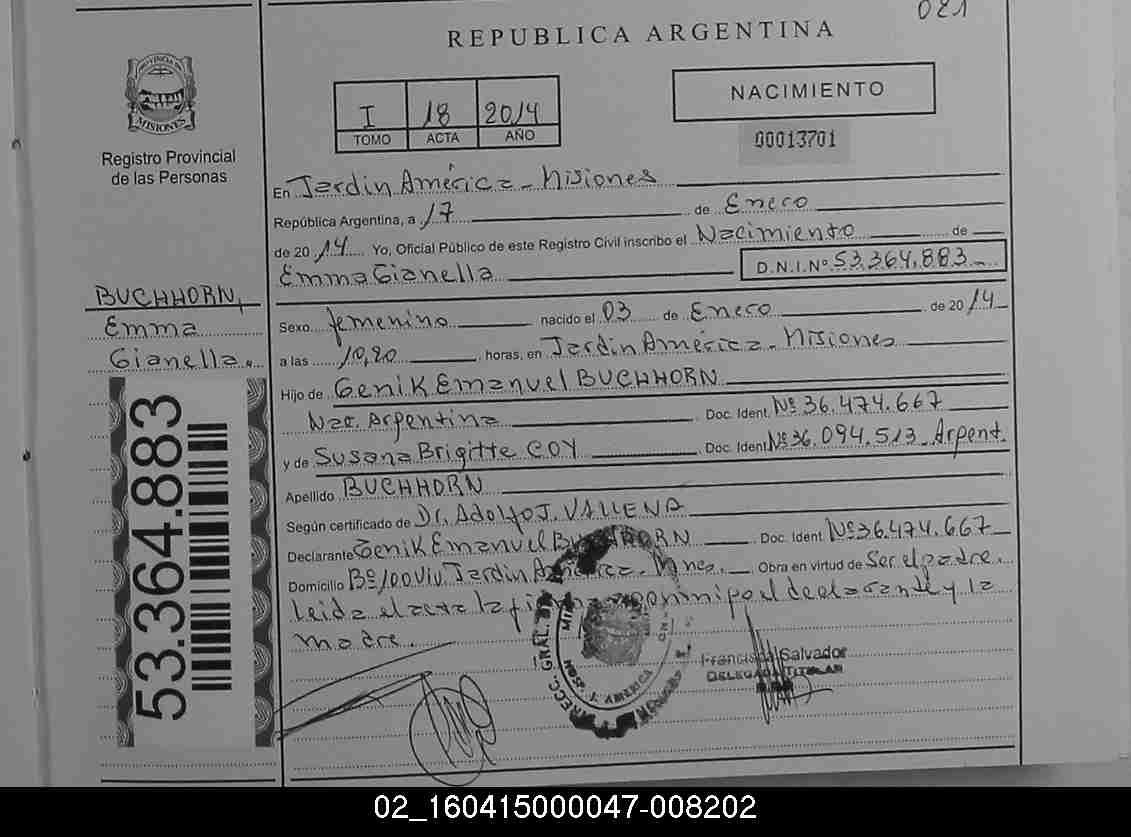 021
REPUBLICA ARGENTINA
PROVINCIA DE
MISIONES
Registro Provincial
de las Personas
I 18 2014
TOMO ACTA AÑO
NACIMIENTO
00013701
En Jardin América - Misiones
República Argentina, a 17 de Enero
de 2014 Yo, Oficial Público de este Registro Civil inscribo el Nacimiento de
Emma Gianella D.N.I.Nº 53.364.883
BUCHHORN,
Emma
Gianella.
Sexo femenino nacido el 03 de Enero de 2014
a las 10,20 horas, en Jardin América - Misiones
Hijo de Genik Emanuel BUCHHORN
Nac. Argentina Doc. Ident. Nº 36.474.667
y de Susana Brigitte COY Doc. Ident. Nº 36.094.513 Argent.
Apellido BUCHHORN
Según certificado de Dr. Adolfo J. VALLENA
Declarante Genik Emanuel BUCHHORN Doc. Ident. Nº 36.474.667
Domicilio Bº 100 Viv. Jardin América - Mnes. Obra en virtud de Ser el padre.
Leida el acta la firman conmigo el declarante y la
madre.
53.364.883
Salvador
DELEGADO TITULAR
J. AMERICA
02_160415000047-008202